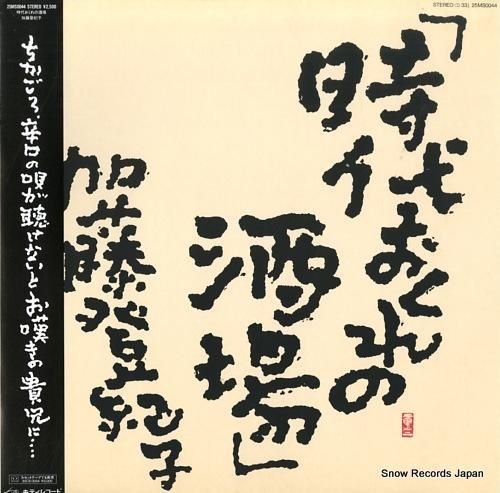 25MS0044 STEREO ¥2,500
時代おくれの酒場
加藤登紀子
ちかごろ、辛口の唄が聴けないとお嘆きの貴兄に……
キティレコード
STEREO ① 33⅓ 25MS0044
「時代おくれの
酒場」
加藤登紀子
Snow Records Japan